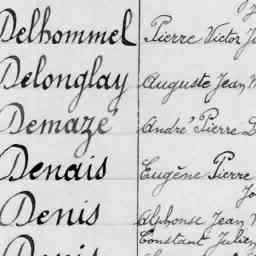 Delhommel Pierre Victor
Delonglay Auguste Jean
Demazé André Pierre
Denais Eugène Pierre
Denis Alphonse Jean
Constant Julien